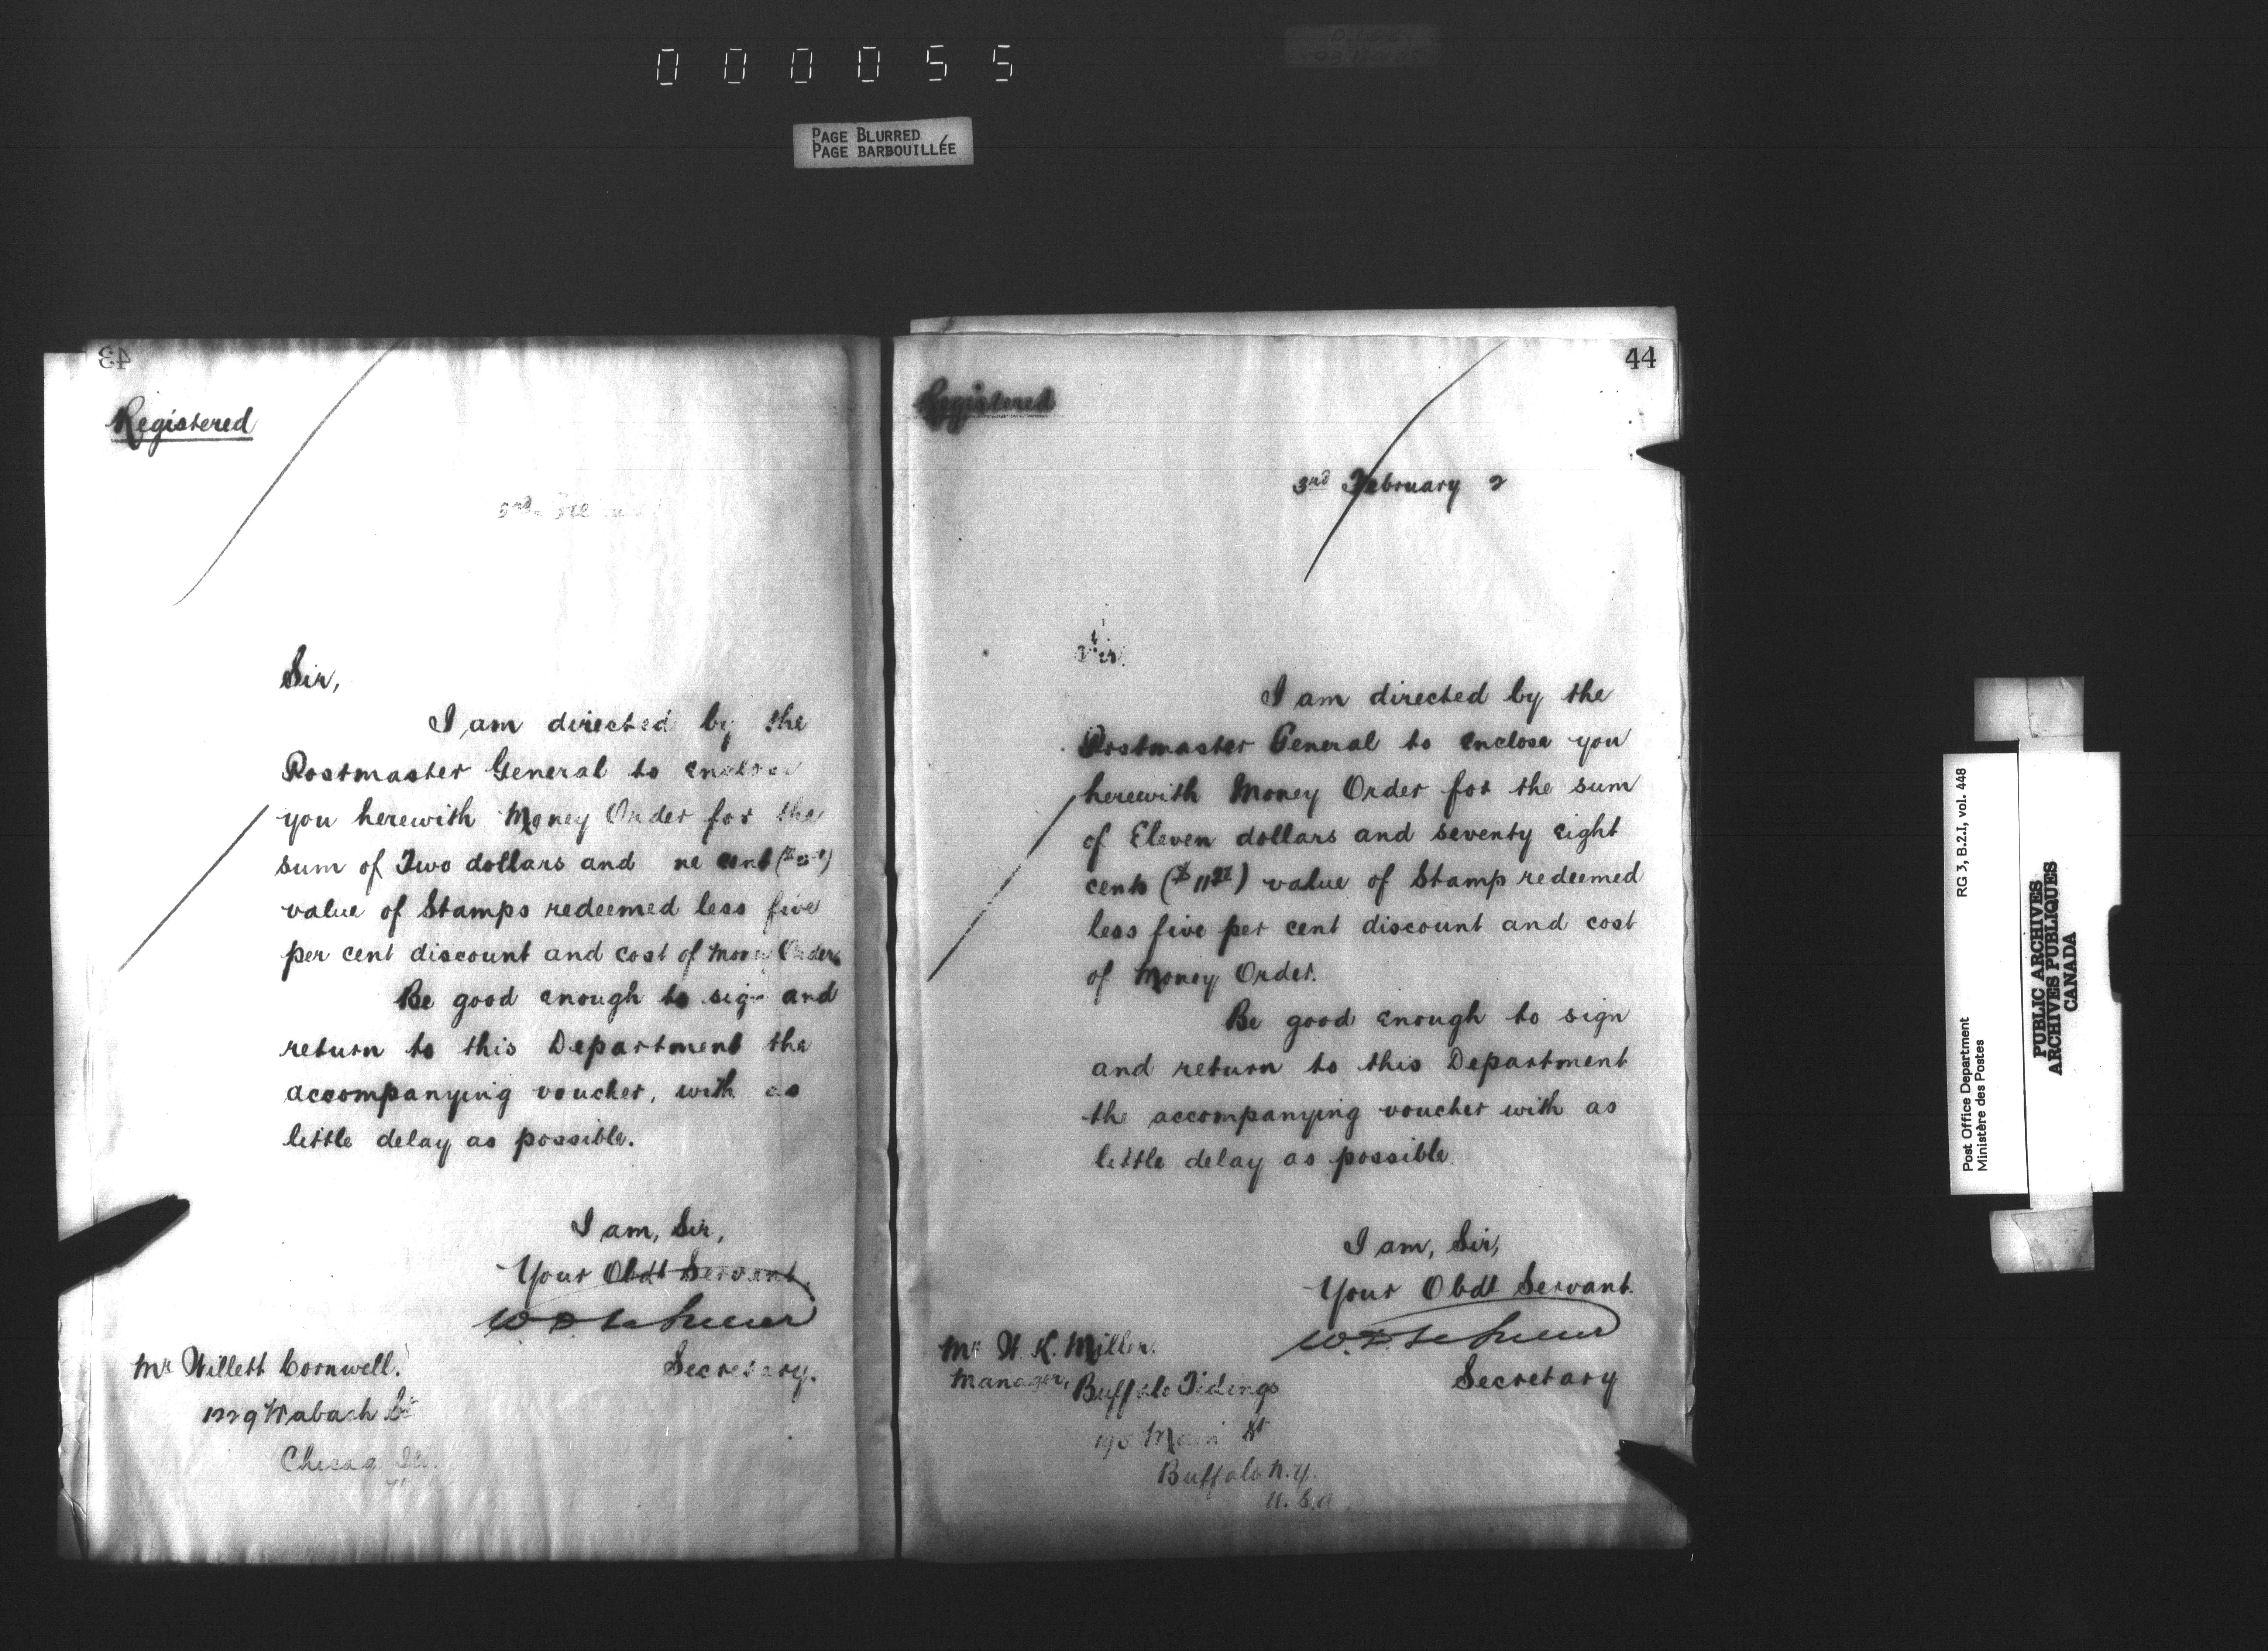 000055
PAGE BLURRED
PAGE BARBOUILLÉE
43
Registered
3rd
Sir,
I am directed by the
Postmaster General to enclose
you herewith Money Order for the
sum of Two dollars and ne cent
value of Stamps redeemed less five
per cent discount and cost of Money Order.
Be good enough to sign and
return to this Department the
accompanying voucher, with as
little delay as possible.
I am, Sir,
Your Obdt Servant.
W D LeSueur
Secretary.
Mr Willett Cornwell.
1229 Wabash St
Chicago Ill.
44
Registered
3rd February 2
Sir
I am directed by the
Postmaster General to enclose you
herewith Money Order for the sum
of Eleven dollars and seventy eight
cents ($11 78) value of Stamp redeemed
less five per cent discount and cost
of Money Order.
Be good enough to sign
and return to this Department
the accompanying voucher with as
little delay as possible
I am, Sir,
Your Obdt Servant.
W. D. LeSueur
Secretary
Mr W. K. Miller.
Manager, Buffalo Tidings
Main St
Buffalo N.Y.
U.S.A.
Post Office Department
Ministère des Postes
RG 3, B.2.I, vol. 448
PUBLIC ARCHIVES
ARCHIVES PUBLIQUES
CANADA